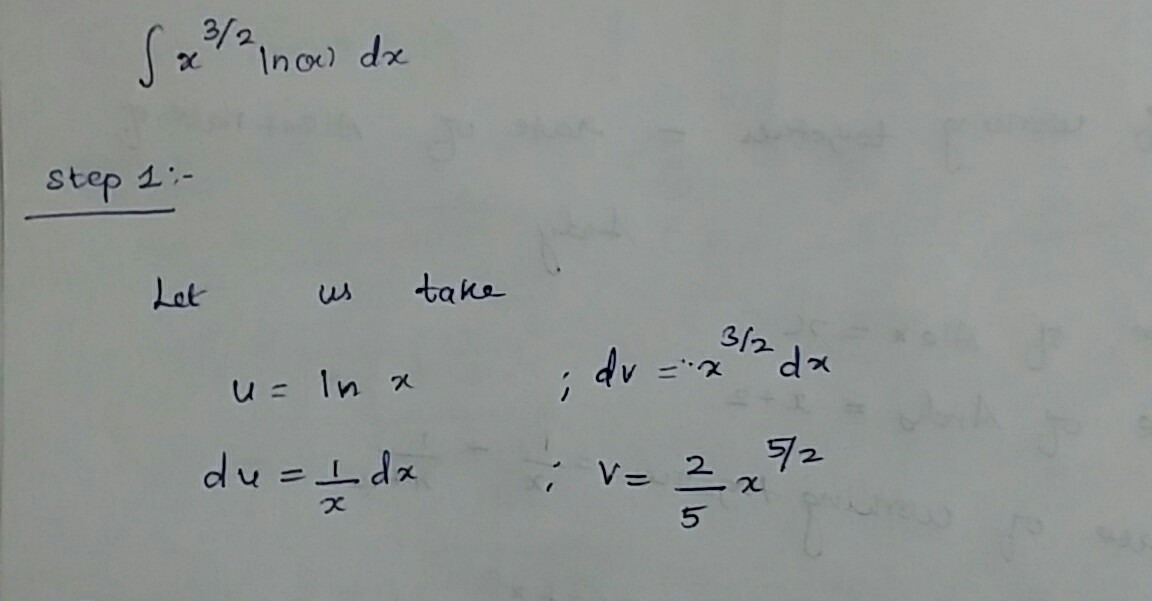 ∫ x^3/2 ln(x) dx
step 1:-
Let us take
u = ln x ; dv = x^3/2 dx
du = 1/x dx ; v = 2/5 x^5/2